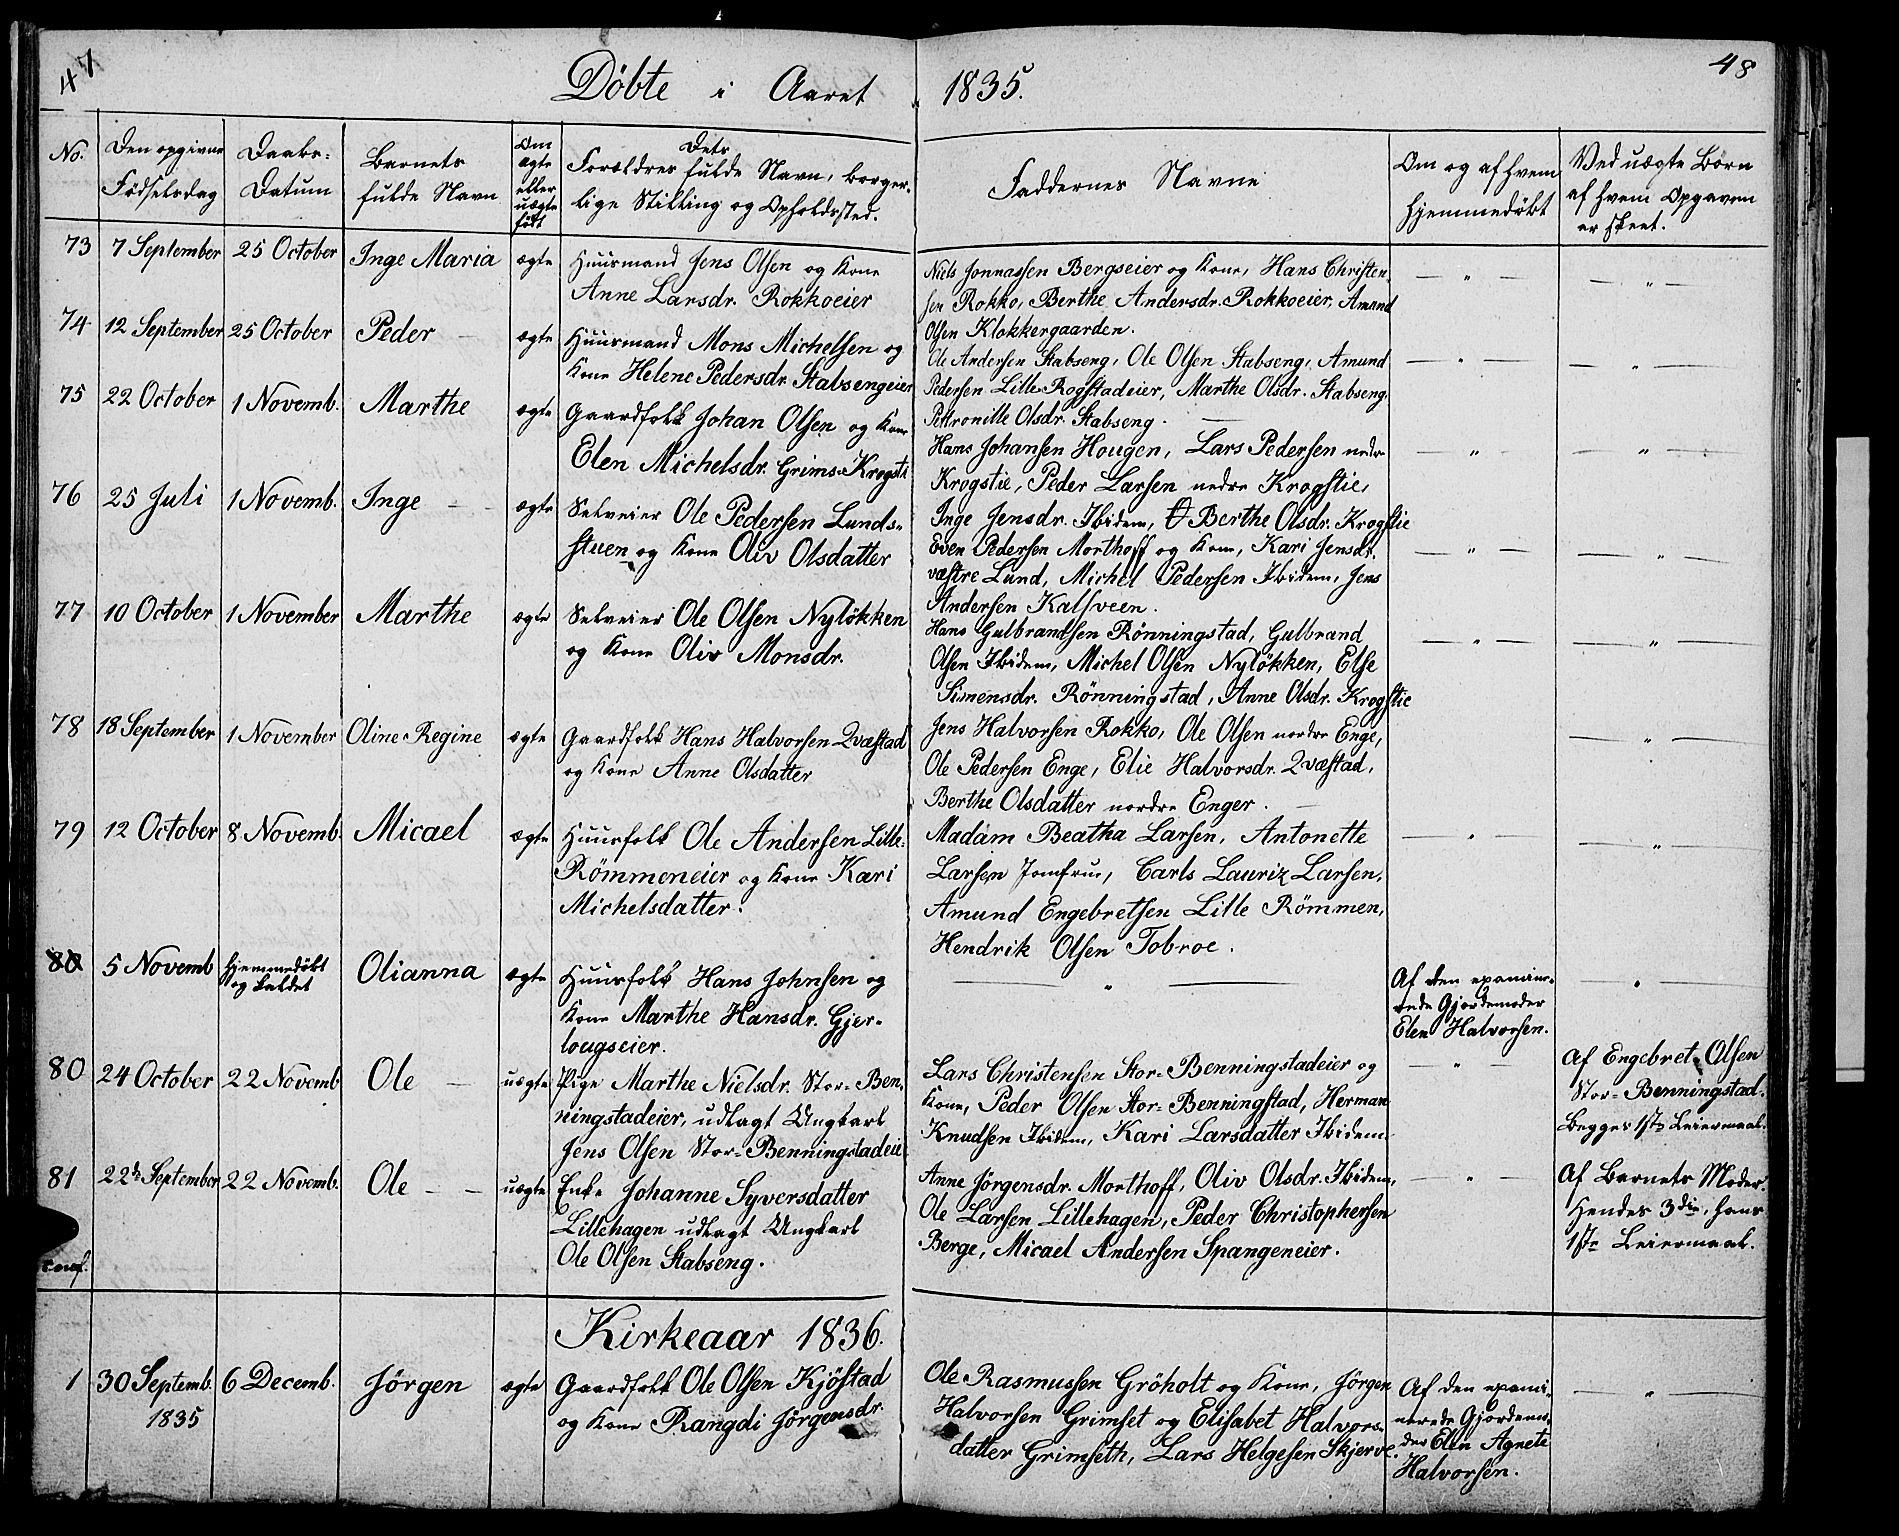 47
Döbte i Aaret 1835.
48
No.
Den opgivne
Födselsdag
Daabs-
Datum
Barnets
fulde Navn
Om
ægte
eller
uægte
födt
Dets
Forældres fulde Navn, borger-
lige Stilling og Opholdssted.
Faddernes Navne
Om og af hvem
hjemmedöbt
Ved uægte Börn
af hvem Opgaven
er skeet.
73 7 September 25 October Inge Maria ægte
Huusmand Jens Olsen og Kone
Anne Larsdr. Rokkoeier
Niels Jonnassen Bergseier og Kone, Hans Christen-
sen Rokko, Berthe Andersdr. Rokkoeier, Amund
Olsen Klokkergaarden.
— " —
— " —
74 12 September 25 October Peder — ægte
Huusmand Mons Michelsen og
Kone Helene Pedersdr. Stabsengeier
Ole Andersen Stabseng, Ole Olsen Stabseng, Amund
Pedersen Lille Rogstadeier, Marthe Olsdr. Stabseng,
Pettronille Olsdr. Stabseng. —
— " —
— " —
75 22 October 1 Novemb. Marthe ægte
Gaardfolk Johan Olsen og Kone
Elen Michelsdr. Grims-Krogsti
Hans Johansen Hougen, Lars Pedersen nedr
Krogstie, Peder Larsen nedre Krogstie,
Inge Jensdr. Ibidem, Berthe Olsdr. Krogstie
— " —
— " —
76 25 Juli 1 Novemb. Inge — — ægte
Selveier Ole Pedersen Lunds-
stuen og Kone Oliv Olsdatter
Even Pedersen Morthoff og Kone, Kari Jensdr.
væstre Lund, Michel Pedersen Ibidem, Jens
Andersen Kalsveen.
— " —
— " —
77 10 October 1 November Marthe ægte
Selveier Ole Olsen Nylökken
og Kone Oliv Monsdr.
Hans Gulbrandsen Rönningstad, Gulbrand
Olsen Ibidem, Michel Olsen Nylökken, Else
Simensdr. Rönningstad, Anne Olsdr. Krogstie
— " —
— " —
78 18 September 1 November Oline Regine ægte
Gaardfolk Hans Halvorsen Qvæstad
og Kone Anne Olsdatter
Jens Halvorsen Rokko, Ole Olsen nordre Enge,
Ole Pedersen Enge, Elie Halvorsdr. Qvæstad,
Berthe Olsdatter nordre Enger. —
— " —
79 12 October 8 Novemb. Micael ægte
Huusfolk Ole Andersen Lille-
Römmeneier og Kone Kari
Michelsdatter.
Madam Beatha Larsen, Antonette
Larsen Jomfrue, Carls Lauriz Larsen,
Amund Engebretsen Lille Römmen,
Hendrik Olsen Tobroe.
— " —
— " —
80 5 Novemb Hjemmedöbt
og kaldet
Olianna ægte
Huusfolk Hans Johnsen og
Kone Marthe Hansdr. Gjer-
lougseier.
— " —
Af den exami-
rede Gjordemoder
Elen Halvorsen.
— " —
80 24 October 22 Novemb Ole — uægte
Pige Marthe Nielsdr. Stor-Ben-
ningstadeier, udlagt Ungkarl
Jens Olsen Stor-Benningstadeie
Lars Christensen Stor-Benningstadeier og
Kone, Peder Olsen Stor-Benningstad, Herman
Knudsen Ibidem, Kari Larsdatter Ibidem
— " —
Af Engebret Olsen
Stor-Benningstad.
Begges 1ste Leiermaal.
81 22de September 22 Novemb. Ole — — uægte
Enke Johanne Syversdatter
Lillehagen udlagt Ungkarl
Ole Olsen Stabseng.
Anne Jörgensdr. Morthoff, Oliv Olsdr. Ibidem,
Ole Larsen Lillehagen, Peder Christophersen
Berge, Micael Andersen Spangeneier.
— " —
Af Barnets Moder.
Hendes 3die, hans
1ste Leiermaal.
Conf.
Kirkeaar 1836.
1 30 Septemb.
1835
6 Decemb. Jörgen ægte
Gaardfolk Ole Olsen Kjöstad
og Kone Rangdi Jörgensdr.
Ole Rasmussen Gröholt og Kone, Jörgen
Halvorsen Grimset og Elisabet Halvors-
datter Grimseth, Lars Helgesen Skjerve.
Af den exami-
nerede Gjordemo-
der Elen Agnete
Halvorsen.
— " —